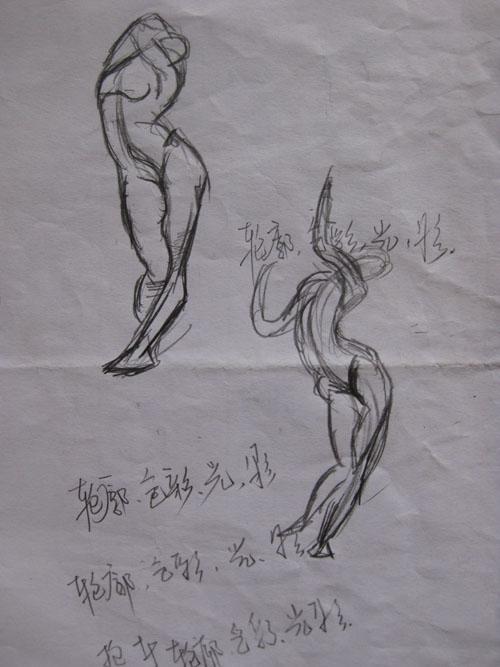 轮廓、色彩、光、影.
轮廓、色彩、光、影
轮廓、色彩、光、影.
轮廓色彩、光影.